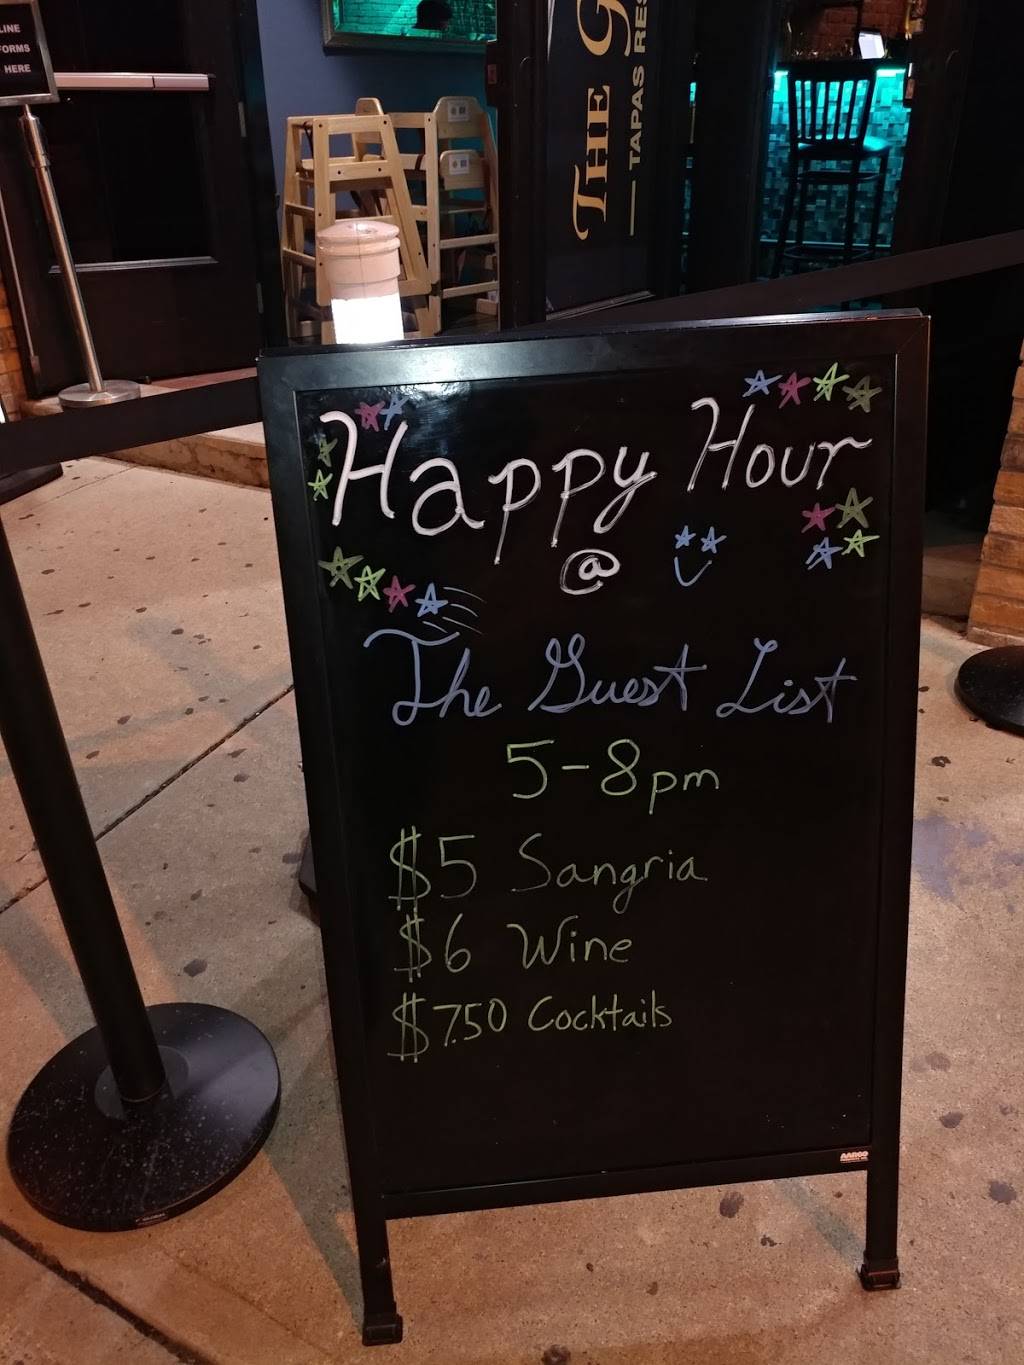 LINE
FORMS
HERE
THE G
TAPAS RES
Happy Hour
@
The Guest List
5-8pm
$5 Sangria
$6 Wine
$7.50 Cocktails
AARCO